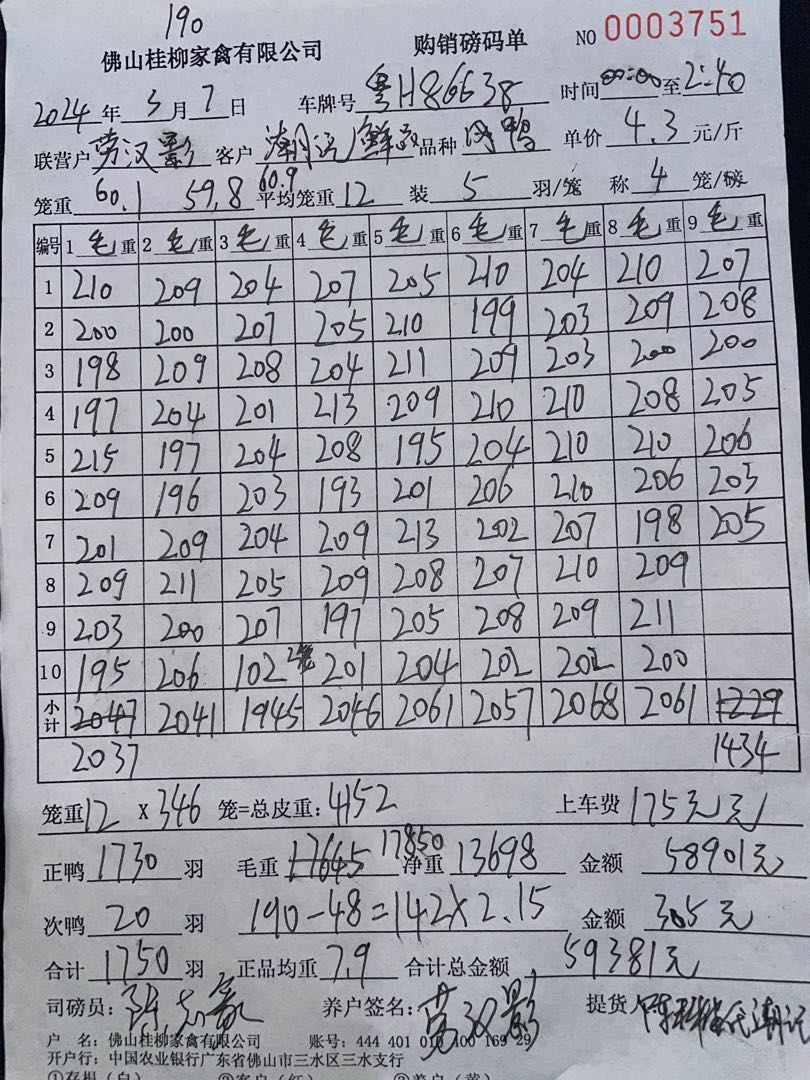 190
佛山桂柳家禽有限公司 购销磅码单 NO 0003751
2024 年 3 月 7 日 车牌号 粤H86638 时间 00:00 至 2:40
联营户 劳汉影 客户 潮 鲜 品种 肉鸭 单价 4.3 元/斤
笼重 60.1 59.8 60.9 平均笼重 12 装 5 羽/笼 称 4 笼/磅
编号 1 毛重 2 毛重 3 毛重 4 毛重 5 毛重 6 毛重 7 毛重 8 毛重 9 毛重
1 210 209 204 207 205 210 204 210 207
2 200 200 207 205 210 199 203 209 208
3 198 209 208 204 211 209 203 200 200
4 197 204 201 213 209 210 210 208 205
5 215 197 204 208 195 204 210 210 206
6 209 196 203 193 201 206 210 206 203
7 201 209 204 209 213 202 207 198 205
8 209 211 205 209 208 207 210 209
9 203 200 207 197 205 208 209 211
10 195 206 102 2笼 201 204 202 202 200
小计 2047 2041 1945 2046 2061 2057 2068 2061 1229
2037 1434
笼重 12 X 346 笼=总皮重: 4152 上车费 175元元
正鸭 1730 羽 毛重 17645 17850 净重 13698 金额 58901元
次鸭 20 羽 190-48=142X2.15 金额 305元
合计 1750 羽 正品均重 7.9 合计总金额 59381元
司磅员: 养户签名: 劳汉影 提货
户 名: 佛山桂柳家禽有限公司 账号: 444 401 010 400 169 29
开户行: 中国农业银行广东省佛山市三水区三水支行
①存根(白) ②客户(红) ③养户(黄)